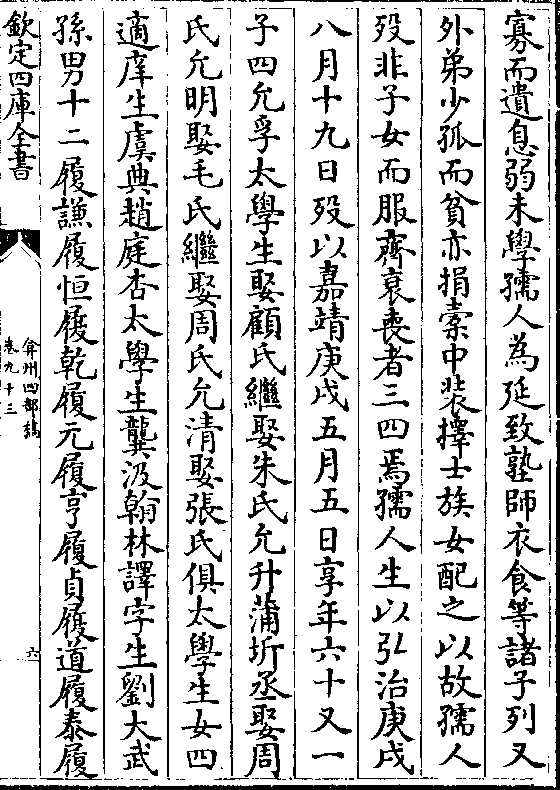 寡而遺息弱未學孺人為延致塾師衣食等諸子列又
外弟少孤而貧亦捐橐中裝擇士族女配之以故孺人
歿非子女而服齊衰喪者三四焉孺人生以弘治庚戌
八月十九日歿以嘉靖庚戌五月五日享年六十又一
子四允孚太學生娶顧氏繼娶朱氏允升蒲圻丞娶周
氏允明娶毛氏繼娶周氏允清娶張氏俱太學生女四
適庠生虞典趙庭杏太學生龔汲翰林譯字生劉大武
孫男十二履謙履恒履乾履元履亨履貞履道履泰履
欽定四庫全書
弇州四部稿
卷九十三
六